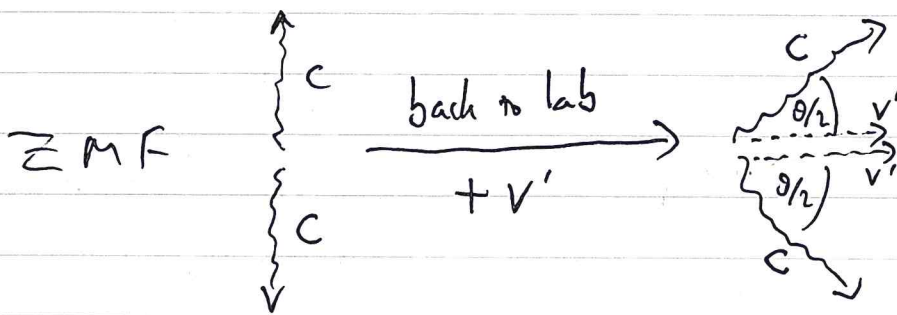 ZMF
C
C
back to lab
+ V'
C
θ/2
V'
V'
θ/2
C